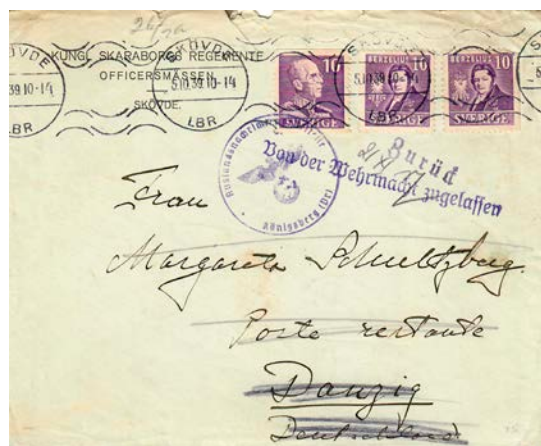 26/20
KUNGL SKARABORGS REGEMENTE
OFFICERSMÄSSEN
SKÖVDE.
SKÖVDE
5.10.39.10-14
LBR
SKÖVDE
5.10.39.10-14
LBR
10
SVERIGE
BERZELIUS
10
SVERIGE
BERZELIUS
10
SVERIGE
Zurück
Von der Wehrmacht zugelassen
Königsberg (Pr)
Frau
Margareta Schultzberg.
Poste restante
Danzig
Deutschland